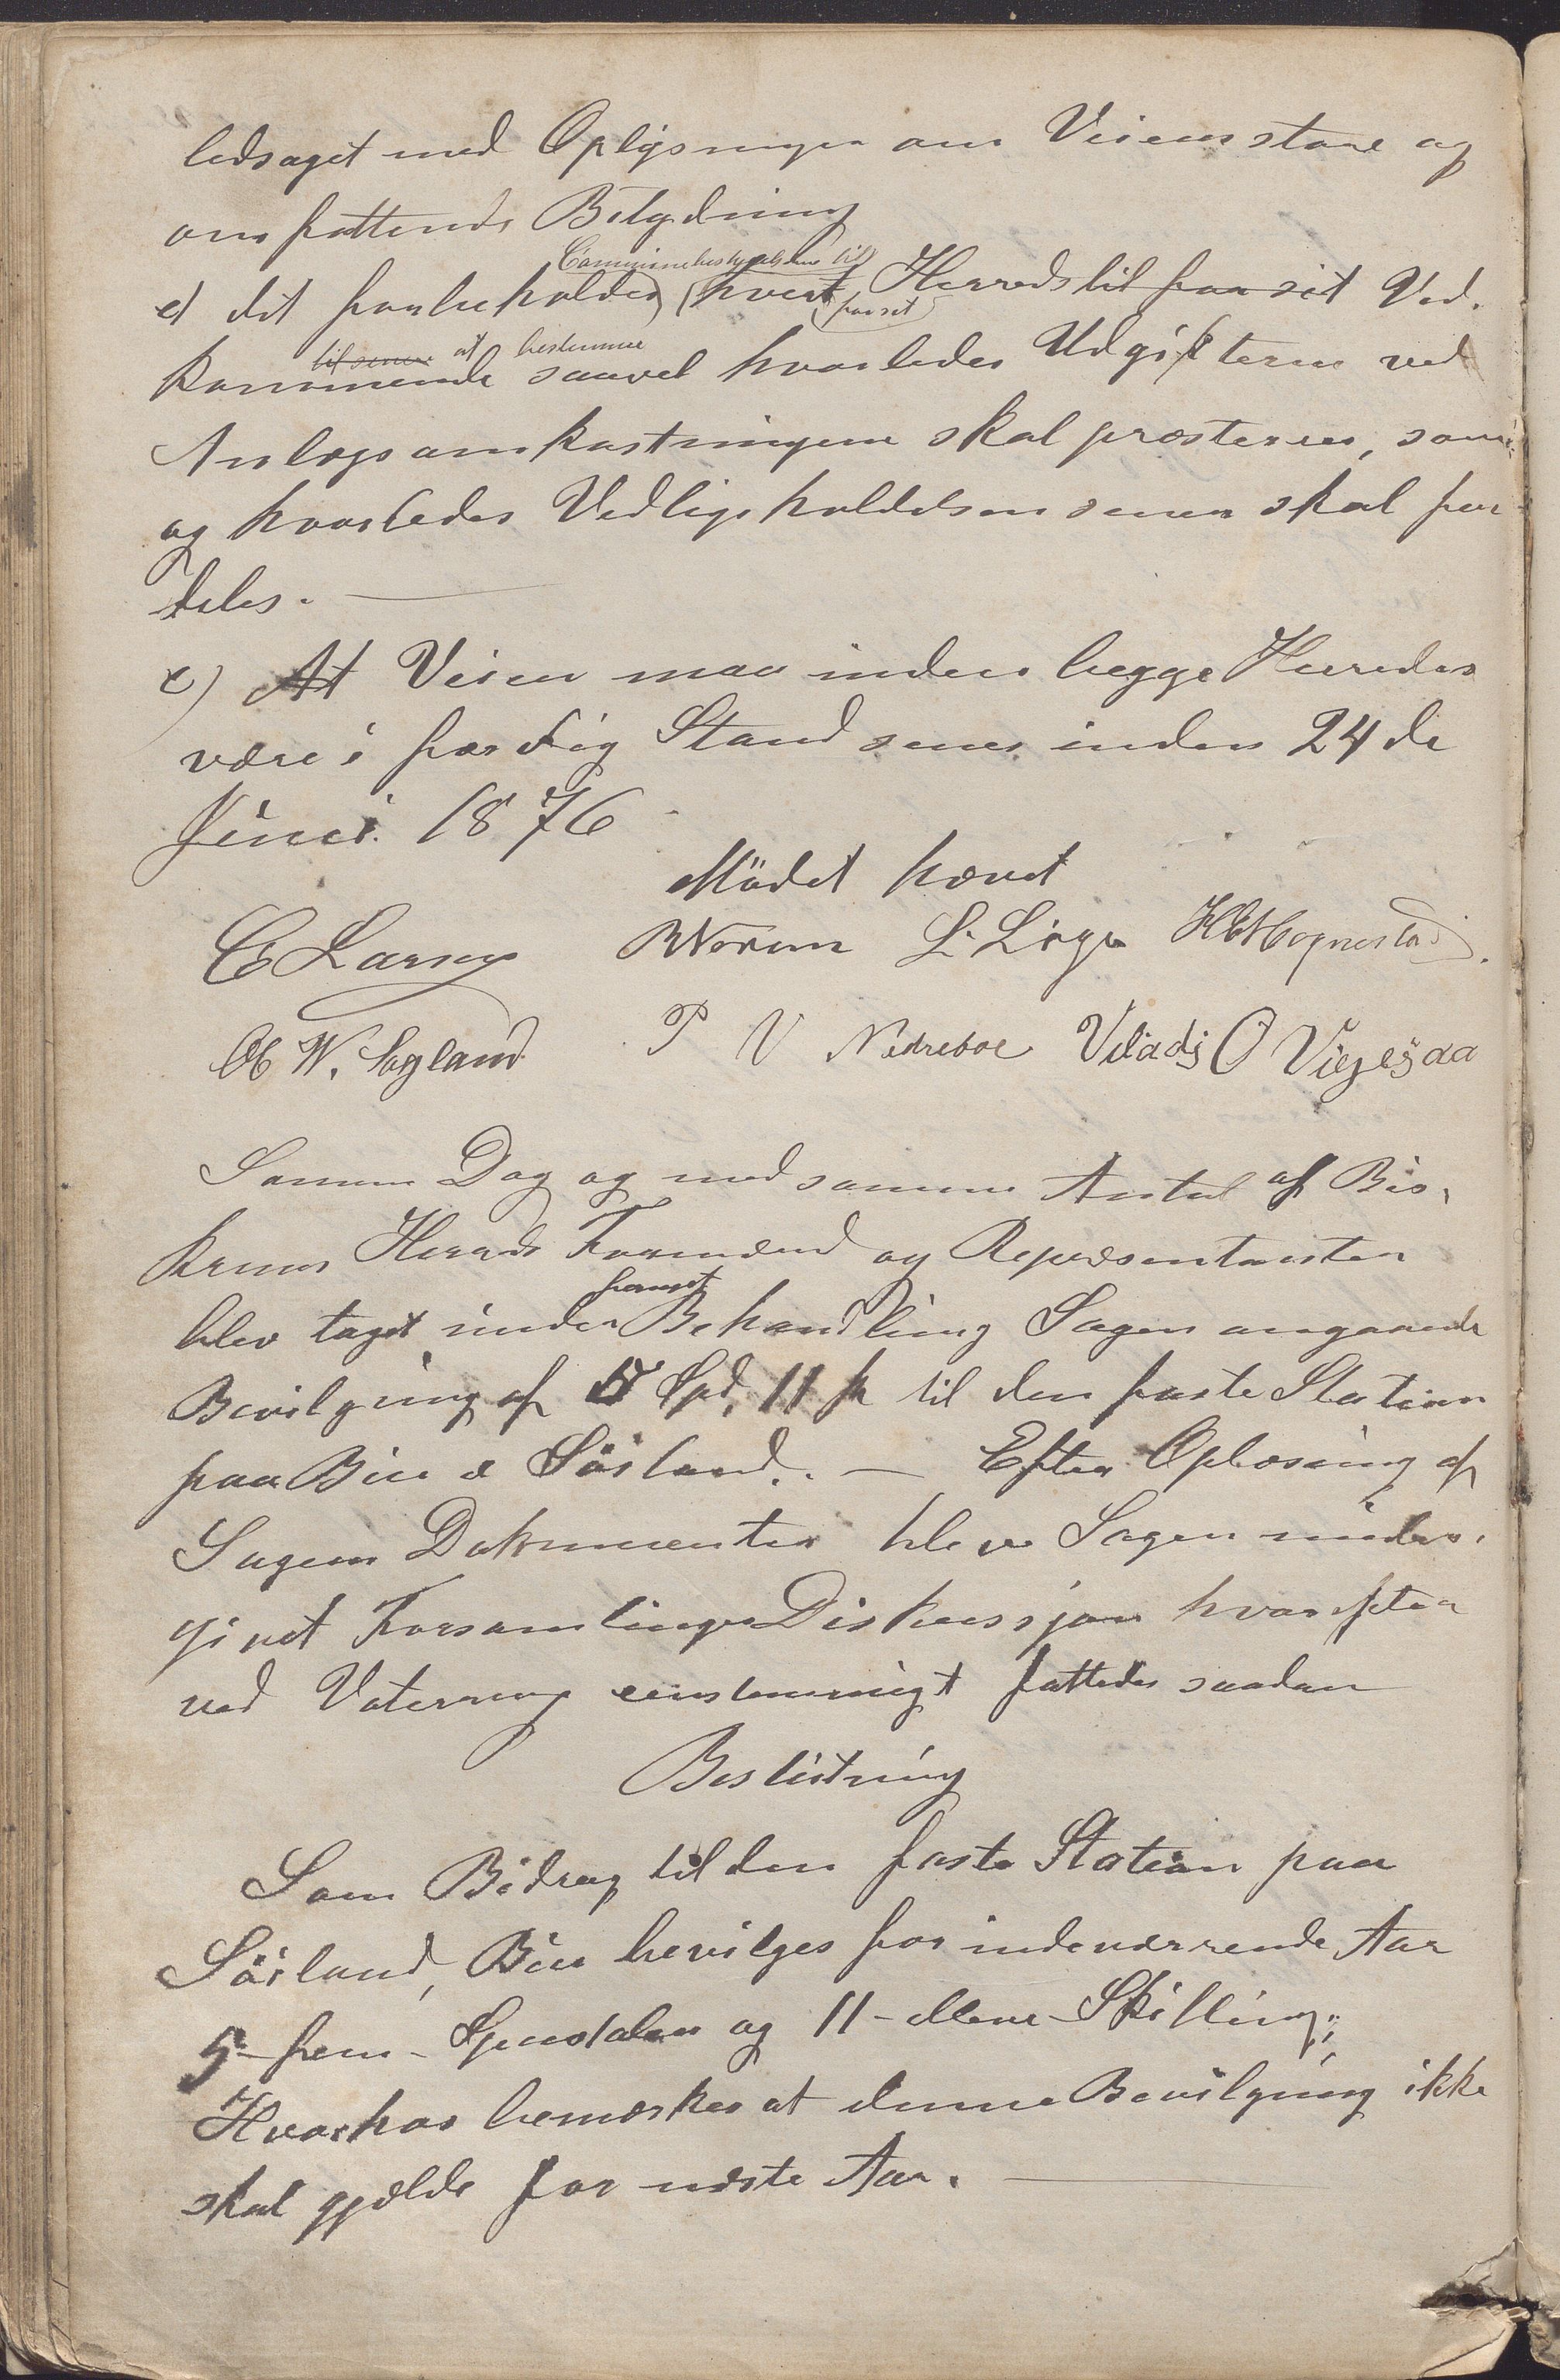 ledsaget med Oplysninger om Veiens stand og
omfattende Betydning
Communebestyrelsene til
d) det forbeholdes hvert Herred til for sit Ved-
for sit
til senere at bestemme
kommende saavel hvorledes Udgifterne ved
Anlægsomkostningerne skal præsteres, som
og hvorledes Vedligeholdelsen senere skal for-
deles.
e) At Veien maa inden begge Hereder
være i færdig Stand senes inden 24de
Juni 1876
Mödet hævet
C Larsen B Norum L. Lige H E Hognestad.
O W. Søyland P V Nedrebøe Viladj O Vigesaa
Samme Dag og med samme Antal af Bis-
krems Herreds Formænd og Repræsentanter
fornyet
blev taget under Behandling Sagen angaaende
Bevilgning af 5 Spd. 11 ß til den faste Station
paa Bue & Sörland. — Efter Oplæsning af
Sagens Dokumenter blev Sagen under-
givet Forsamlingen Diskussjon hvorefter
ved Votering eenstemmigt fattedes saadan
Beslutning
Som Bidrag til den faste Station paa
Sörland, Bue bevilges for indeværrende Aar
5- fem- Speciedaler og 11- elleve- Skilling;
Hvorhos bemærkes at denne Bevilgning ikke
skal gjælde for næste Aar.